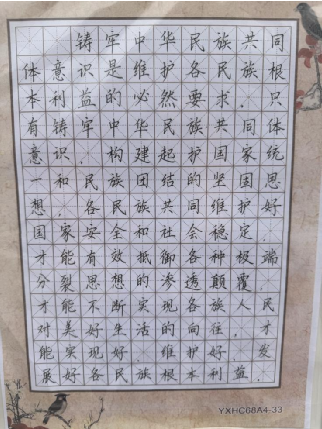 铸牢中华民族共同
体意识是维护各民族根
本利益的必然要求.只
有铸牢中华民族共同体
意识.构建起护国家统
一和民族团结的坚固思
想.各民族共同维护好
国家安全和社会稳定.
才能有效抵御各种极端.
分裂思想的渗透颠覆.
才能不断实现各族人民
对美好生活的向往.才
能实现好.维护好发
展好各民族根本利益.
YXHC08A4-33